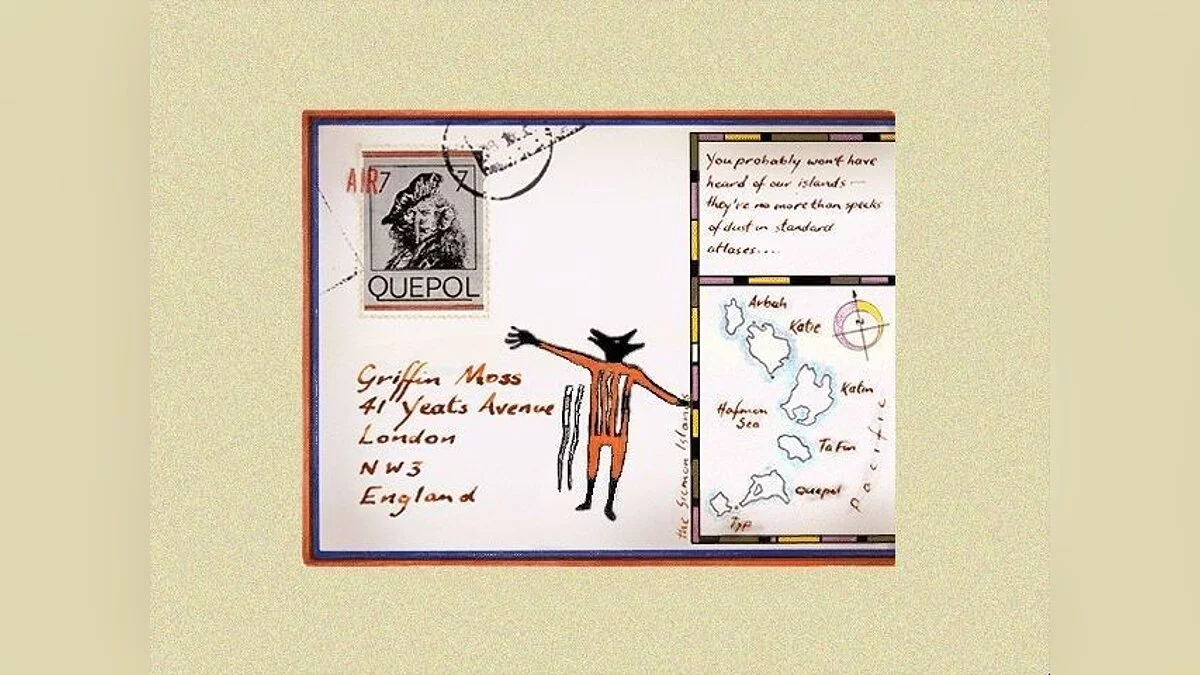 AIR
7 7
QUEPOL
Griffin Moss
41 Yeats Avenue
London
NW3
England
You probably won't have
heard of our islands —
they're no more than specks
of dust in standard
atlases....
Arbah
Katie
N
Katin
Hafmon
Sea
Ta Fin
Quepol
Typ
Pacific
the Sicmon Islands